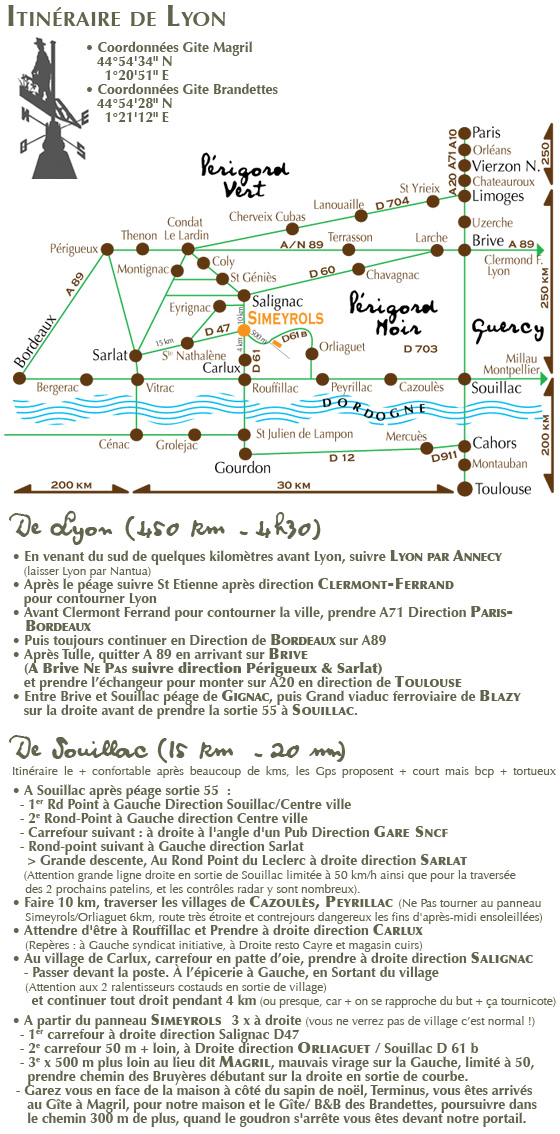 ITINÉRAIRE DE LYON
• Coordonnées Gite Magril
44°54'34" N
1°20'51" E
• Coordonnées Gite Brandettes
44°54'28" N
1°21'12" E
N
E
O
S
Paris
Orléans
Vierzon N.
Chateauroux
Limoges
A20 A71 A10
250
Périgord
Vert
St Yrieix
D 704
Lanouaille
Cherveix Cubas
Uzerche
Condat
Le Lardin
Thenon
Périgueux
A/N 89
Terrasson
Larche
Brive
A 89
Clermond F.
Lyon
A 89
Montignac
Coly
St Géniès
D 60
Chavagnac
250 KM
Salignac
Eyrignac
10 km
SIMEYROLS
Périgord
Noir
Quercy
Bordeaux
D 47
15 km
500 m
D61 B
4 km
D 61
Orliaguet
D 703
Sarlat
Ste Nathalène
Carlux
Millau
Montpellier
Bergerac
Vitrac
Rouffillac
Peyrillac
Cazoulès
Souillac
DORDOGNE
Cénac
Grolejac
St Julien de Lampon
Mercuès
Cahors
Gourdon
D 12
D911
Montauban
200 KM
Toulouse
200 KM
30 KM
De Lyon (450 km - 4h30)
• En venant du sud de quelques kilomètres avant Lyon, suivre LYON PAR ANNECY
(laisser Lyon par Nantua)
• Après le péage suivre St Etienne après direction CLERMONT-FERRAND
pour contourner Lyon
• Avant Clermont Ferrand pour contourner la ville, prendre A71 Direction PARIS-
BORDEAUX
• Puis toujours continuer en Direction de BORDEAUX sur A89
• Après Tulle, quitter A 89 en arrivant sur BRIVE
(A BRIVE NE PAS suivre direction Périgueux & Sarlat)
et prendre l'échangeur pour monter sur A20 en direction de TOULOUSE
• Entre Brive et Souillac péage de GIGNAC, puis Grand viaduc ferroviaire de BLAZY
sur la droite avant de prendre la sortie 55 à SOUILLAC.
De Souillac (15 km - 20 mn)
Itinéraire le + confortable après beaucoup de kms, les Gps proposent + court mais bcp + tortueux
• A Souillac après péage sortie 55 :
- 1er Rd Point à Gauche Direction Souillac/Centre ville
- 2e Rond-Point à Gauche direction Centre ville
- Carrefour suivant : à droite à l'angle d'un Pub Direction GARE SNCF
- Rond-point suivant à Gauche direction Sarlat
> Grande descente, Au Rond Point du Leclerc à droite direction SARLAT
(Attention grande ligne droite en sortie de Souillac limitée à 50 km/h ainsi que pour la traversée
des 2 prochains patelins, et les contrôles radar y sont nombreux).
• Faire 10 km, traverser les villages de CAZOULÈS, PEYRILLAC (Ne Pas tourner au panneau
Simeyrols/Orliaguet 6km, route très étroite et contrejours dangereux les fins d'après-midi ensoleillées)
• Attendre d'être à Rouffillac et Prendre à droite direction CARLUX
(Repères : à Gauche syndicat initiative, à Droite resto Cayre et magasin cuirs)
• Au village de Carlux, carrefour en patte d'oie, prendre à droite direction SALIGNAC
- Passer devant la poste. À l'épicerie à Gauche, en Sortant du village
(Attention aux 2 ralentisseurs costauds en sortie de village)
et continuer tout droit pendant 4 km (ou presque, car + on se rapproche du but + ça tournicote)
• A partir du panneau SIMEYROLS 3 x à droite (vous ne verrez pas de village c'est normal !)
- 1er carrefour à droite direction Salignac D47
- 2e carrefour 50 m + loin, à Droite direction ORLIAGUET / Souillac D 61 b
- 3e x 500 m plus loin au lieu dit MAGRIL, mauvais virage sur la Gauche, limité à 50,
prendre chemin des Bruyères débutant sur la droite en sortie de courbe.
- Garez vous en face de la maison à côté du sapin de noël, Terminus, vous êtes arrivés
au Gîte à Magril, pour notre maison et le Gîte/ B&B des Brandettes, poursuivre dans
le chemin 300 m de plus, quand le goudron s'arrête vous êtes devant notre portail.